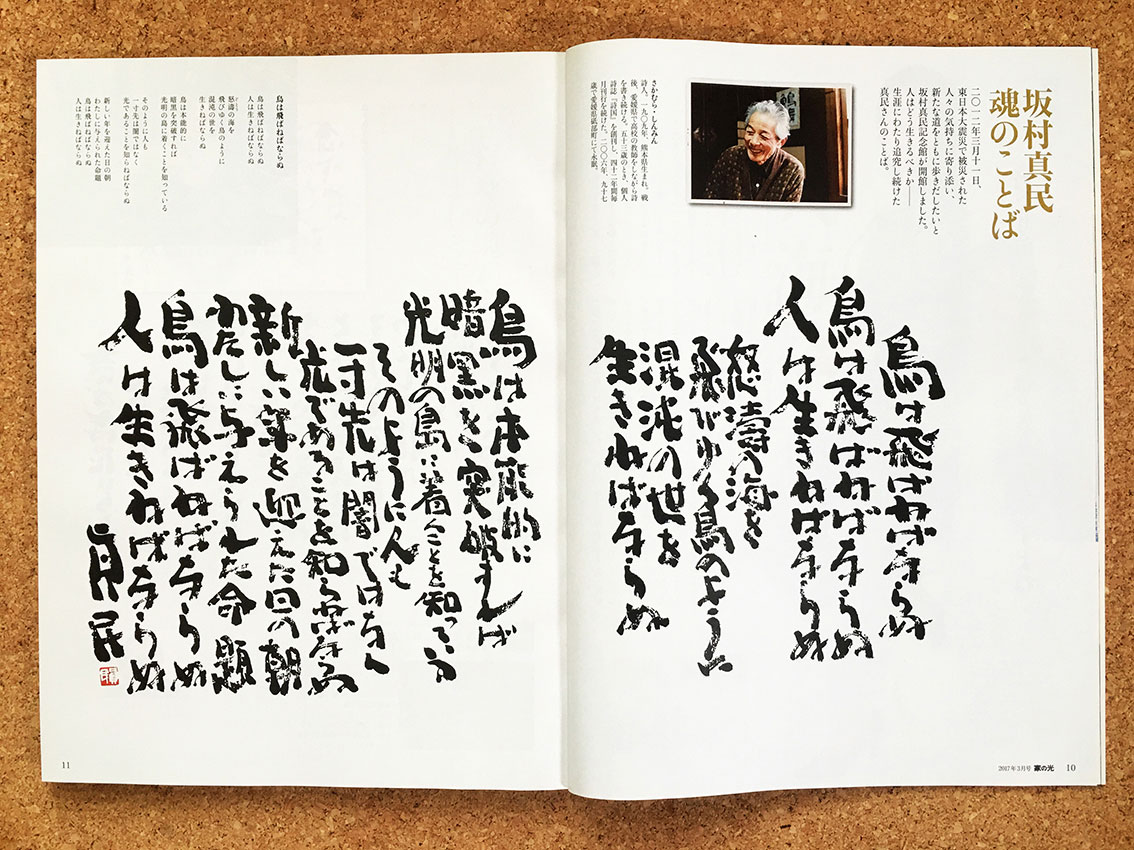 坂村真民
魂のことば
二〇一二年三月十一日、
東日本大震災で被災された
人々の気持ちに寄り添い、
新たな道をともに歩きだしたいと
坂村真民記念館が開館しました。
人はどう生きるべきか――
生涯にわたり追究し続けた
真民さんのことば。
さかむら・しんみん
詩人。一九〇九年、熊本県生まれ。戦
後、愛媛県で高校の教師をしながら詩
を書き続ける。五十三歳のとき、個人
詩誌「詩国」を創刊し、四十二年間毎
月刊行を続けた。二〇〇六年、九十七
歳で愛媛県砥部町にて永眠。
鳥は飛ばねばならぬ
鳥は飛ばねばならぬ
人は生きねばならぬ
怒濤の海を
飛びゆく鳥のように
混沌の世を
生きねばならぬ
2017年3月号 家の光 10
鳥は飛ばねばならぬ
鳥は飛ばねばならぬ
人は生きねばならぬ
怒濤の海を
飛びゆく鳥のように
混沌の世を
生きねばならぬ
鳥は本能的に
暗黒を突破すれば
光明の島に着くことを知っている
そのように人も
一寸先は闇ではなく
光であることを知らねばならぬ
新しい年を迎えた日の朝
わたしに与えられた命題
鳥は飛ばねばならぬ
人は生きねばならぬ
鳥は本能的に
暗黒を突破すれば
光明の島に着くことを知っている
そのように人も
一寸先は闇ではなく
光であることを知らねばならぬ
新しい年を迎えた日の朝
わたしに与えられた命題
鳥は飛ばねばならぬ
人は生きねばならぬ
真民
11